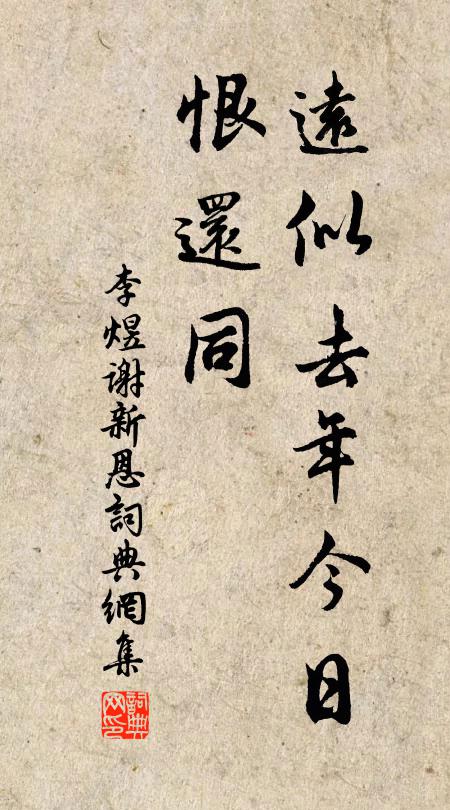 遠似去年今日
恨還同
李煜谢新恩詞典網集
詞典网印